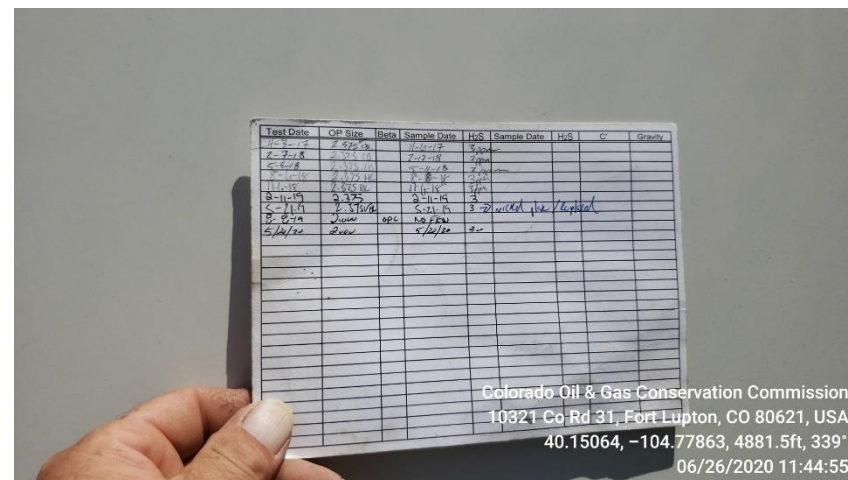 Test Date OP Size Beta Sample Date H2S Sample Date H2S C' Gravity
11-3-17 2.375 11-6-17 3ppm
2-7-18 2.375 2-12-18 3ppm
5-9-18 2.375 5-11-18
8-6-18 2.375 8-8-18 3ppm
2.375 3ppm
2-11-19 2.375 2-11-19 3
5-21-19 2.375 5-21-19 3
8-8-19 2.000 OPC NO FLOW
5/26/20 2.000 5/26/20
Colorado Oil & Gas Conservation Commission
10321 Co Rd 31, Fort Lupton, CO 80621, USA
40.15064, −104.77863, 4881.5ft, 339°
06/26/2020 11:44:55